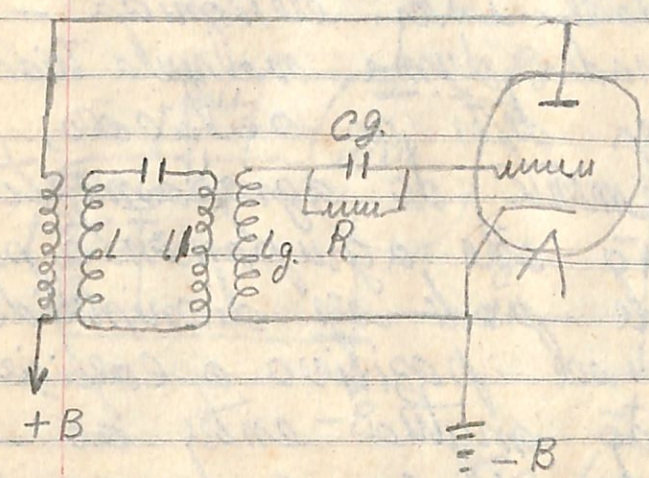 Cg.
L L1 Lg. R
+B
-B